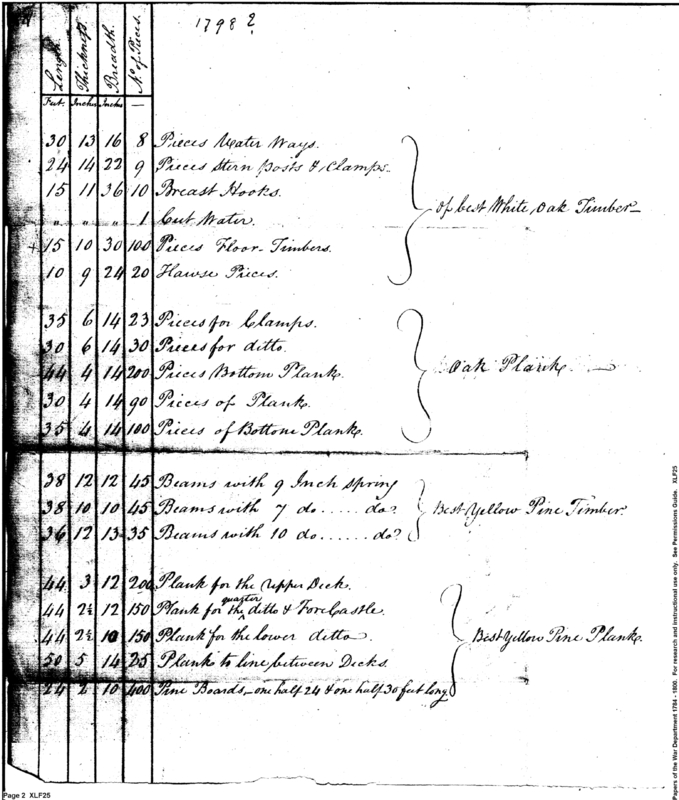 1798?
Length. Thickness. Breadth. No. of Pieces.
Feet. Inches Inches —
30 13 16 8 Pieces Water Ways.
24 14 22 9 Pieces Stern posts & Clamps-
15 11 36 10 Breast Hooks.
" " " 1 Cut Water.
Of best White, Oak Timber-
+15 10 30 100 Pieces Floor-Timbers.
10 9 24 20 Hawse Pieces.
35 6 14 23 Pieces for Clamps.
30 6 14 30 Pieces for ditto.
44 4 14 200 Pieces Bottom Plank.
Oak Plank. —
30 4 14 90 Pieces of Plank.
35 4 14 100 Pieces of Bottom Plank.
38 12 12 45 Beams with 9 Inch spring
38 10 10 45 Beams with 7 do ..... do?
Best Yellow Pine Timber.
36 12 13 35 Beams with 10 do ...... do?
44 3 12 200 Plank for the upper Deck.
44 2½ 12 150 Plank for the quarter ditto & ForeCastle.
44 2½ 10 150 Plank for the lower ditto.
Best Yellow Pine Plank.
50 5 14 25 Plank to line between Decks.
24 2 10 400 Pine Boards,- one half 24 & one half 30 feet long
Page 2 XLF25
Papers of the War Department 1784 - 1800. For research and instructional use only. See Permissions Guide. XLF25